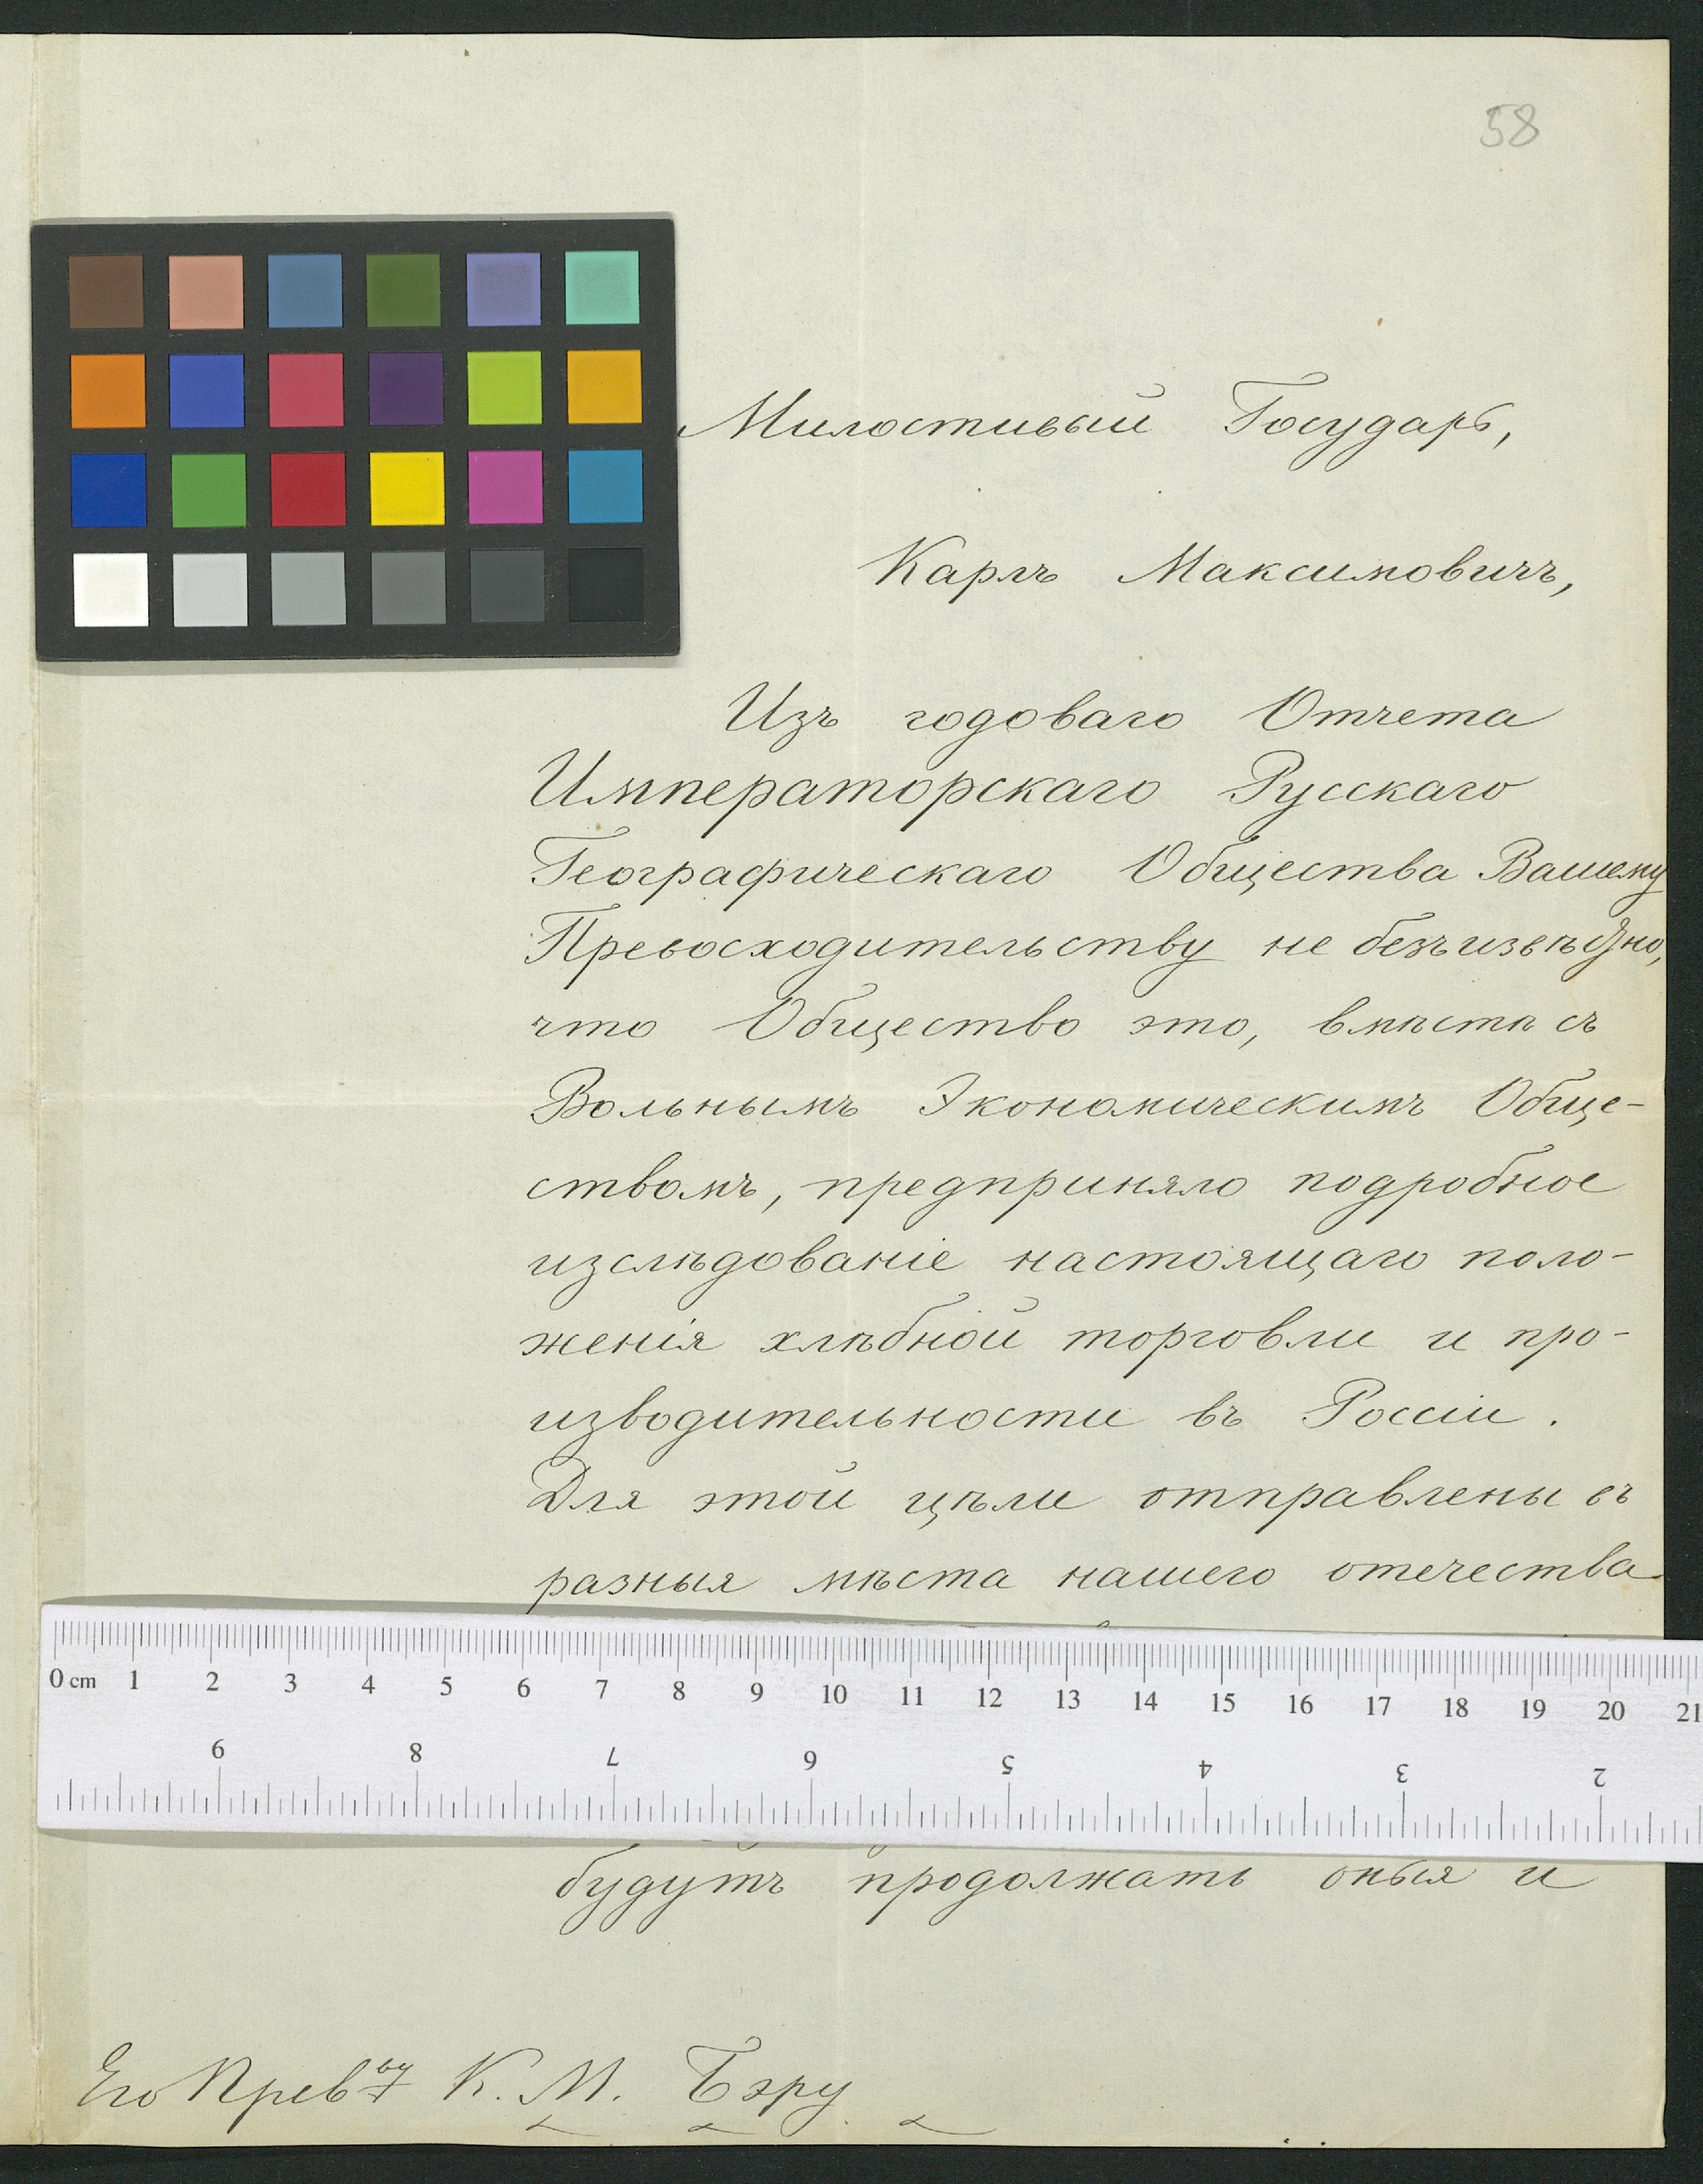 58
Милостивый Государь,
Карлъ Максимовичъ,
Изъ годоваго Отчета
Императорскаго Русскаго
Географическаго Общества Вашему
Превосходительству не безъизвѣстно,
что Общество это, вмѣстѣ съ
Вольнымъ Экономическимъ Обще-
ствомъ, предприняло подробное
изслѣдованіе настоящаго поло-
женія хлѣбной торговли и про-
изводительности въ Россіи.
Для этой цѣли отправлены въ
разныя мѣста нашего отечества
0 cm 1 2 3 4 5 6 7 8 9 10 11 12 13 14 15 16 17 18 19 20 21
9 8 7 6 5 4 3 2
будутъ продолжать оныя и
Его Прев-ву К. М. Бэру